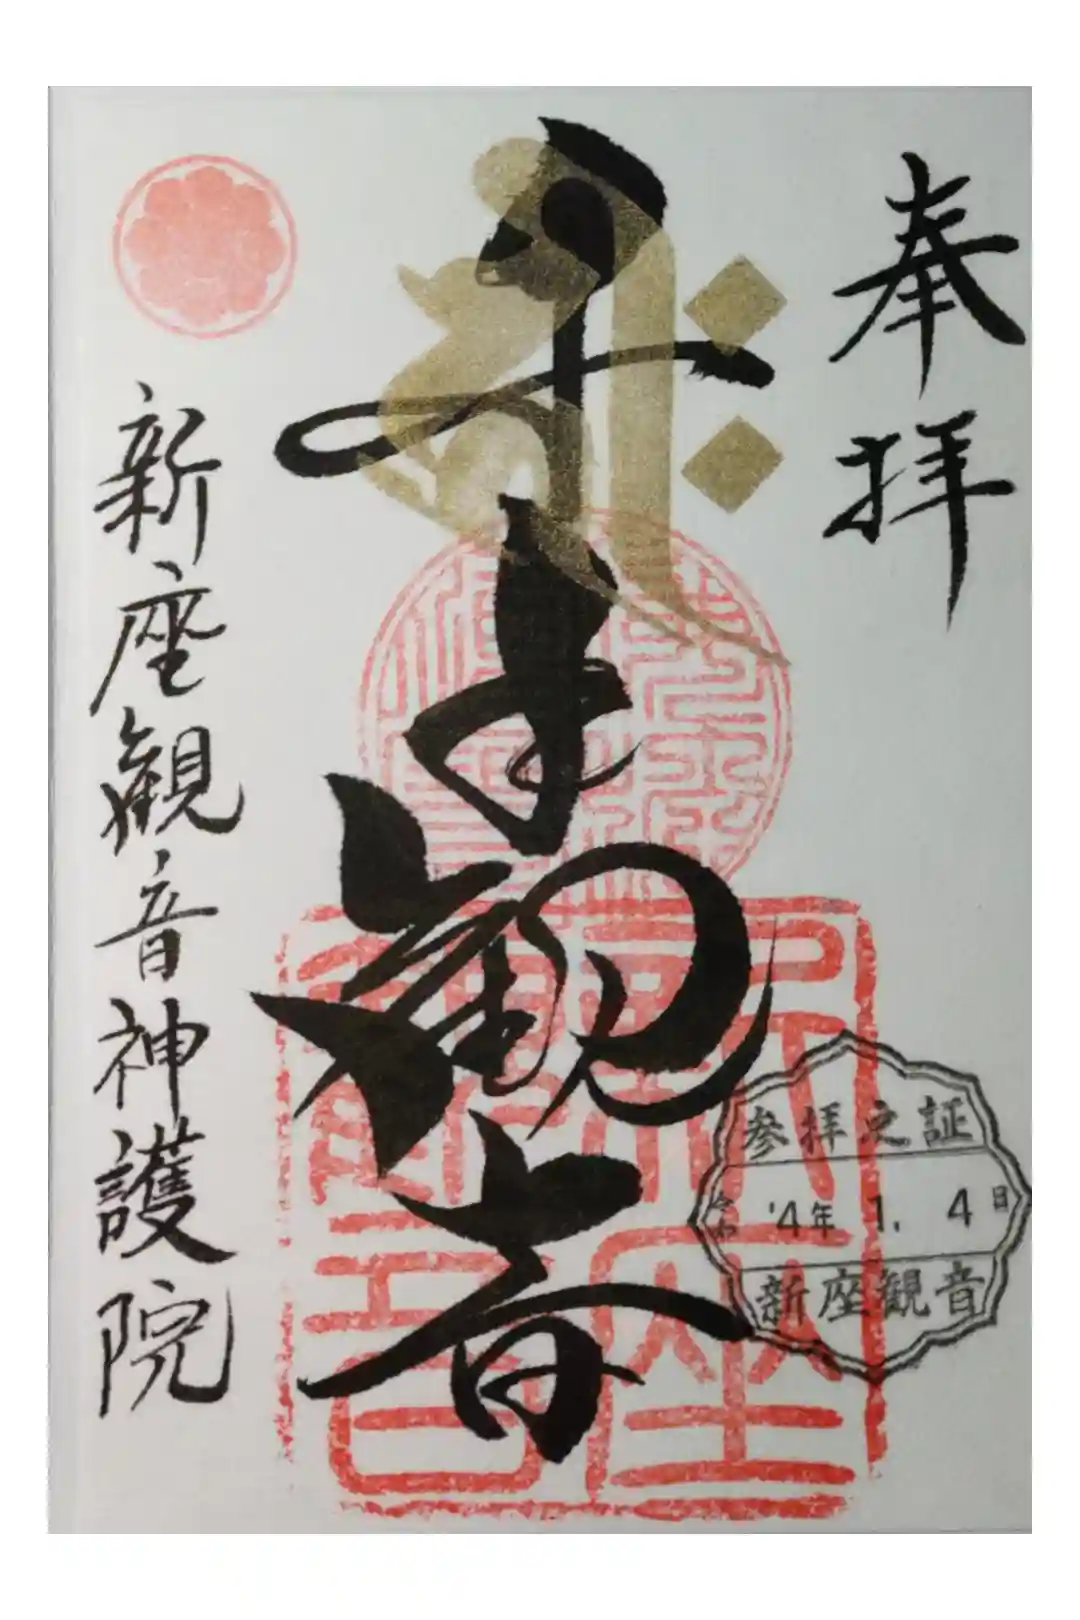 奉拝
千手観音
新座観音神護院
参拝之証
令和 '4年 1. 4日
新座観音
新座観音